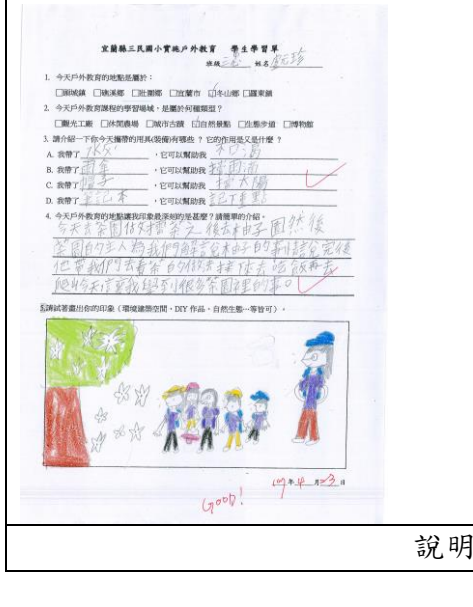 宜蘭縣三民國小實施戶外教育 學生學習單
班級 三忠 姓名
1. 今天戶外教育的地點是屬於：
□頭城鎮 □礁溪鄉 □壯圍鄉 □宜蘭市 ☑冬山鄉 □羅東鎮
2. 今天戶外教育課程的學習場域，是屬於何種類型？
□觀光工廠 □休閒農場 □城市古蹟 ☑自然景點 □生態步道 □博物館
3. 請介紹一下你今天攜帶的用具(裝備)有哪些？它的作用是又是什麼？
A. 我帶了 水 ，它可以幫助我 口渴
B. 我帶了 雨傘 ，它可以幫助我 擋雨
C. 我帶了 帽子 ，它可以幫助我 擋太陽
D. 我帶了 筆記本 ，它可以幫助我 記下重點
4. 今天戶外教育的地點讓我印象最深刻的是甚麼？請簡單的介紹。
今天去茶園 後去柚子園然後
茶園的主人為我們解說柚子的事情說完後
他帶我們去看茶 去吃飯再去
爬 今天 我學到很多茶園裡的事。
5.請試著畫出你的印象（環境建築空間、DIY 作品、自然生態…等皆可）。
107年4月23日
GOOD!
說明